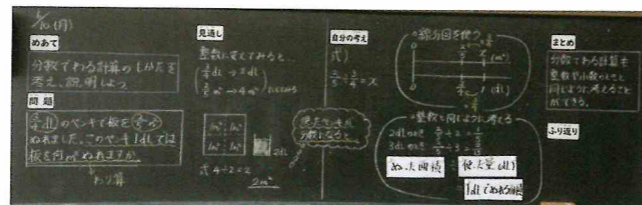 6/10(月)
めあて
分数でわる計算のしかたを
考え、説明しよう
問題
3/4dLのペンキで板を2/5m²
ぬれました。このペンキ1dLでは
板を何m²ぬれますか。
わり算
見通し
整数に変えてみると、
2dL
式 4÷2=2
2m²
使ったペンキが
分数になると
自分の考え
式)
2/5÷3/4=x
◦線分図を使う
(m²)
(dL)
◦整数と同じように考える
2dLのとき
3dLのとき
ぬった面積
÷
使った量(dL)
=
1dLでぬれる面積
まとめ
分数でわる計算も
整数や小数のときと
同じように考えること
ができる。
ふり返り